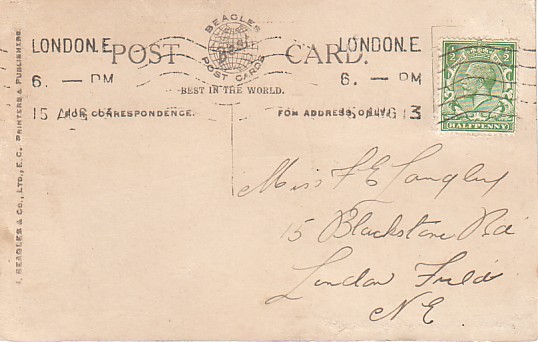 LONDON.E
6. — PM
15 AUG
BEAGLES
POST CARDS
POST CARD.
BEST IN THE WORLD.
LONDON.E
6. — PM
15 AUG 13
½ ½
HALFPENNY
FOR CORRESPONDENCE.
FOR ADDRESS ONLY.
J. BEAGLES & Co., LTD., E.C. PRINTERS & PUBLISHERS.
Miss F E Langley
15 Blackstone Rd
London Fields
N E